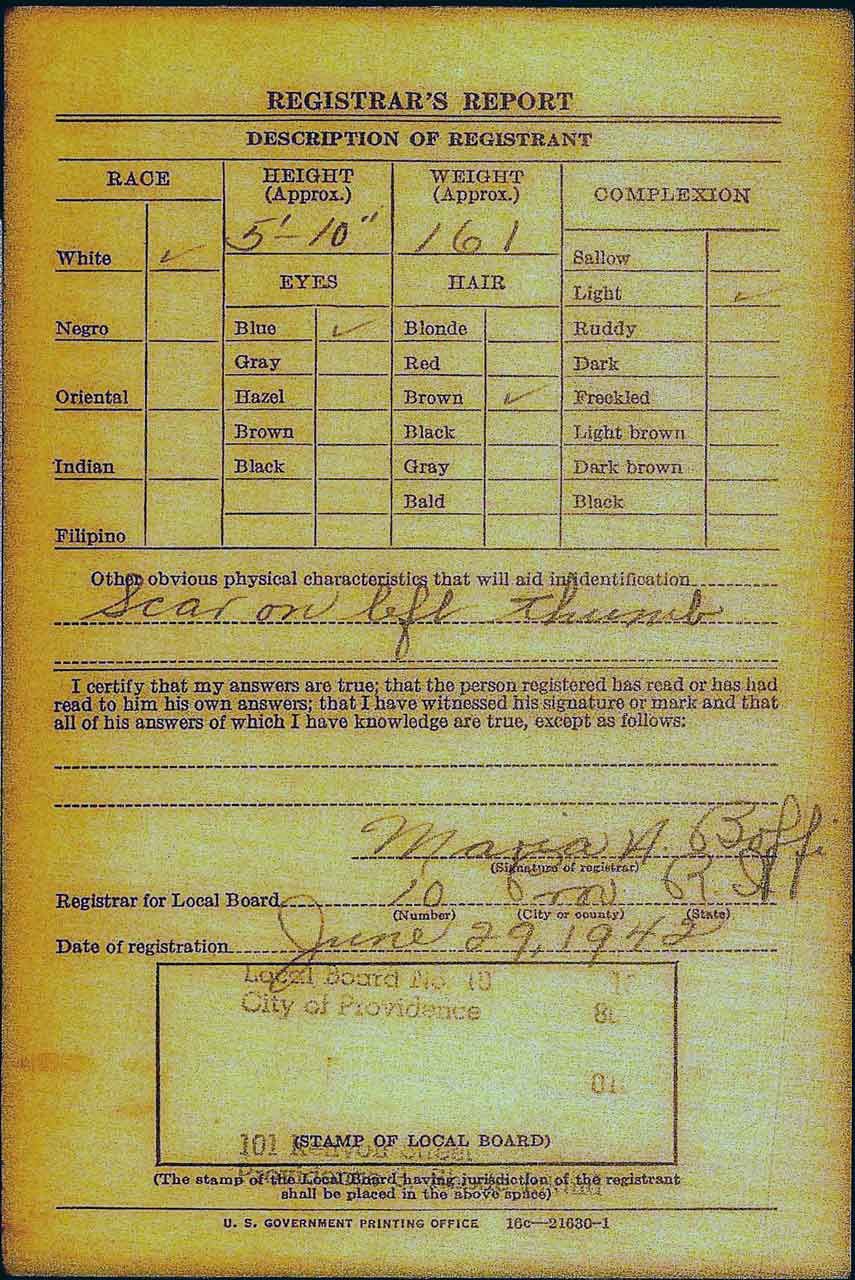 REGISTRAR'S REPORT
DESCRIPTION OF REGISTRANT
RACE
HEIGHT
(Approx.)
WEIGHT
(Approx.)
COMPLEXION
5'-10"
161
White ✓
EYES
HAIR
Sallow
Light ✓
Negro
Blue ✓
Blonde
Ruddy
Gray
Red
Dark
Oriental
Hazel
Brown ✓
Freckled
Brown
Black
Light brown
Indian
Black
Gray
Dark brown
Bald
Black
Filipino
Other obvious physical characteristics that will aid in identification
Scar on left thumb
I certify that my answers are true; that the person registered has read or has had
read to him his own answers; that I have witnessed his signature or mark and that
all of his answers of which I have knowledge are true, except as follows:
Maria A. Boffi
(Signature of registrar)
Registrar for Local Board 10 Prov R.I.
(Number) (City or county) (State)
Date of registration June 29, 1942
Local Board No. 10
City of Providence
101 Street
(STAMP OF LOCAL BOARD)
Providence
(The stamp of the Local Board having jurisdiction of the registrant
shall be placed in the above space)
U. S. GOVERNMENT PRINTING OFFICE 16c—21630-1